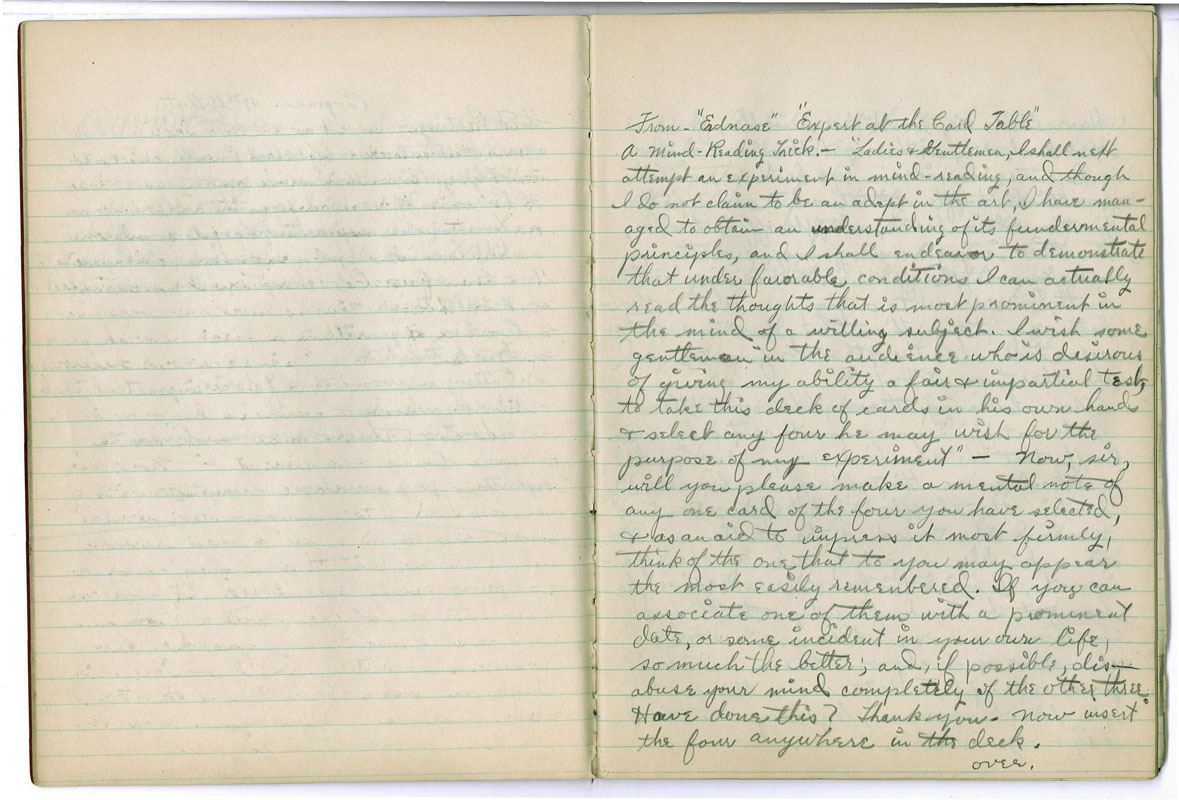 From - "Erdnase" "Expert at the Card Table"
A Mind-Reading Trick. - "Ladies & Gentlemen, I shall next
attempt an experiment in mind-reading, and though
I do not claim to be an adept in the art, I have man-
aged to obtain an understanding of its fundermental
principles, and I shall endeavor to demonstrate
that under favorable conditions I can actually
read the thoughts that is most prominent in
the mind of a willing subject. I wish some
gentleman in the audience who is desirous
of giving my ability a fair & impartial test,
to take this deck of cards in his own hands
& select any four he may wish for the
purpose of my experiment" - Now, sir,
will you please make a mental note of
any one card of the four you have selected,
& as an aid to impress it most firmly,
think of the one that to you may appear
the most easily remembered. If you can
associate one of them with a prominent
date, or some incident in your own life,
so much the better; and, if possible, dis-
abuse your mind completely of the other three.
Have done this? Thank you - Now insert
the four anywhere in the deck.
over.